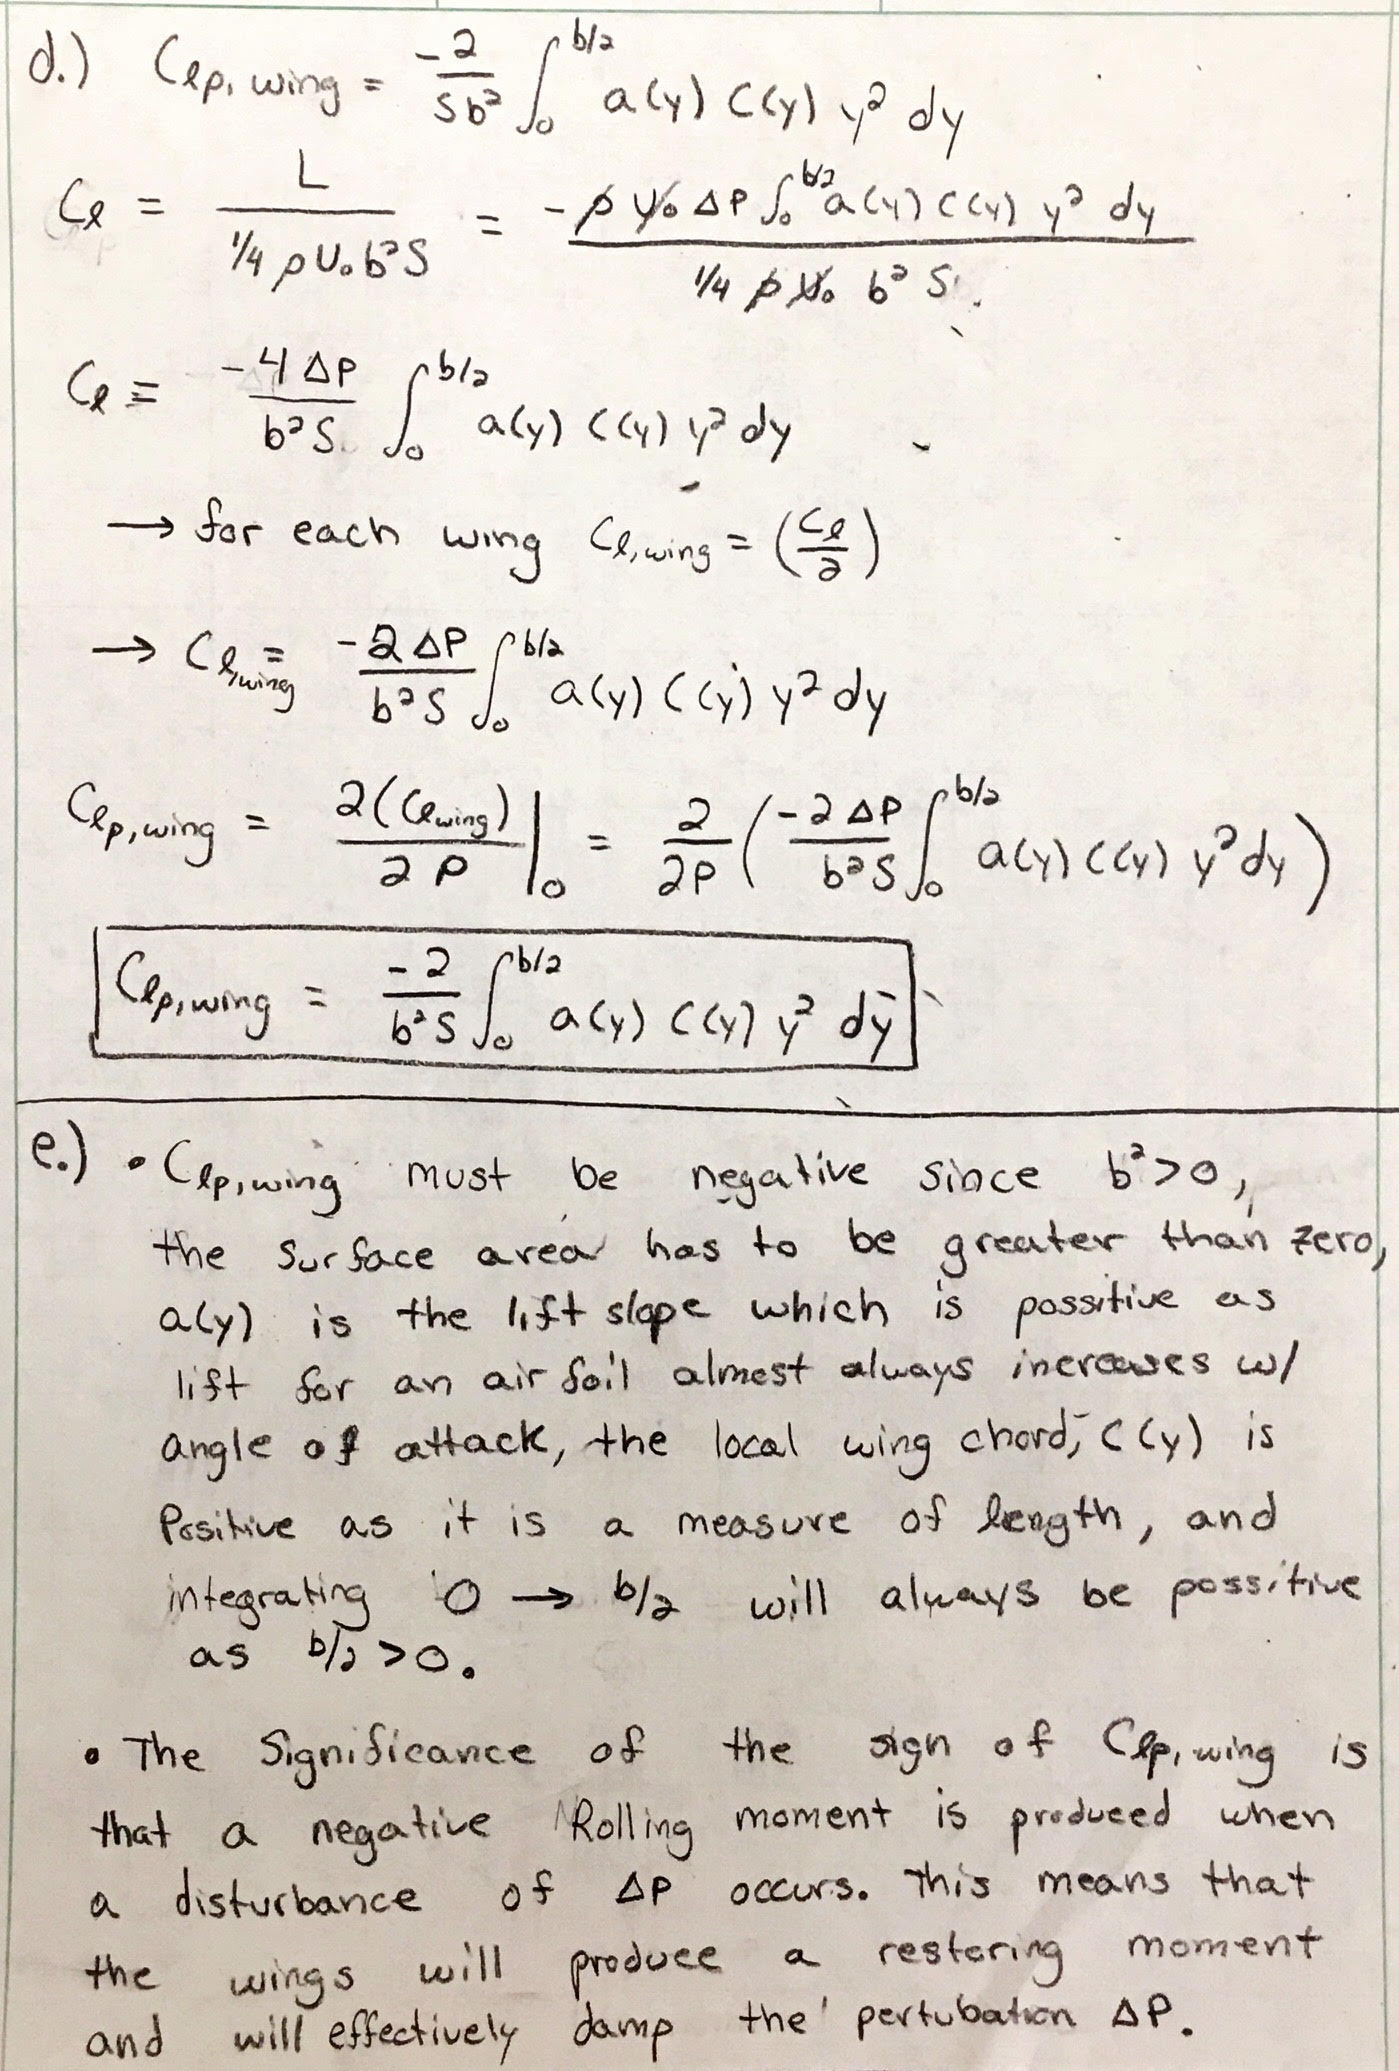 d.) Clp, wing = -2/Sb² ∫₀^b/2 a(y) c(y) y² dy
Cl = L / (1/4 ρ U₀ b² S) = -ρ U₀ ΔP ∫₀^b/2 a(y) c(y) y² dy / (1/4 ρ U₀ b² S)
Cl = -4 ΔP / b² S ∫₀^b/2 a(y) c(y) y² dy
→ for each wing Cl,wing = (Cl/2)
→ Cl,wing = -2 ΔP / b² S ∫₀^b/2 a(y) c(y) y² dy
Clp,wing = 2(Clwing) / 2P |₀ = 2/2P ( -2 ΔP / b² S ∫₀^b/2 a(y) c(y) y² dy )
Clp,wing = -2 / b² S ∫₀^b/2 a(y) c(y) y² dy
e.) • Clp,wing must be negative since b² > 0,
the surface area has to be greater than zero,
a(y) is the lift slope which is possitive as
lift for an air foil almost always increases w/
angle of attack, the local wing chord, c(y) is
Positive as it is a measure of length, and
integrating 0 → b/2 will always be possitive
as b/2 > 0.
• The Significance of the sign of Clp, wing is
that a negative Rolling moment is produced when
a disturbance of ΔP occurs. This means that
the wings will produce a restoring moment
and will effectively damp the pertubation ΔP.